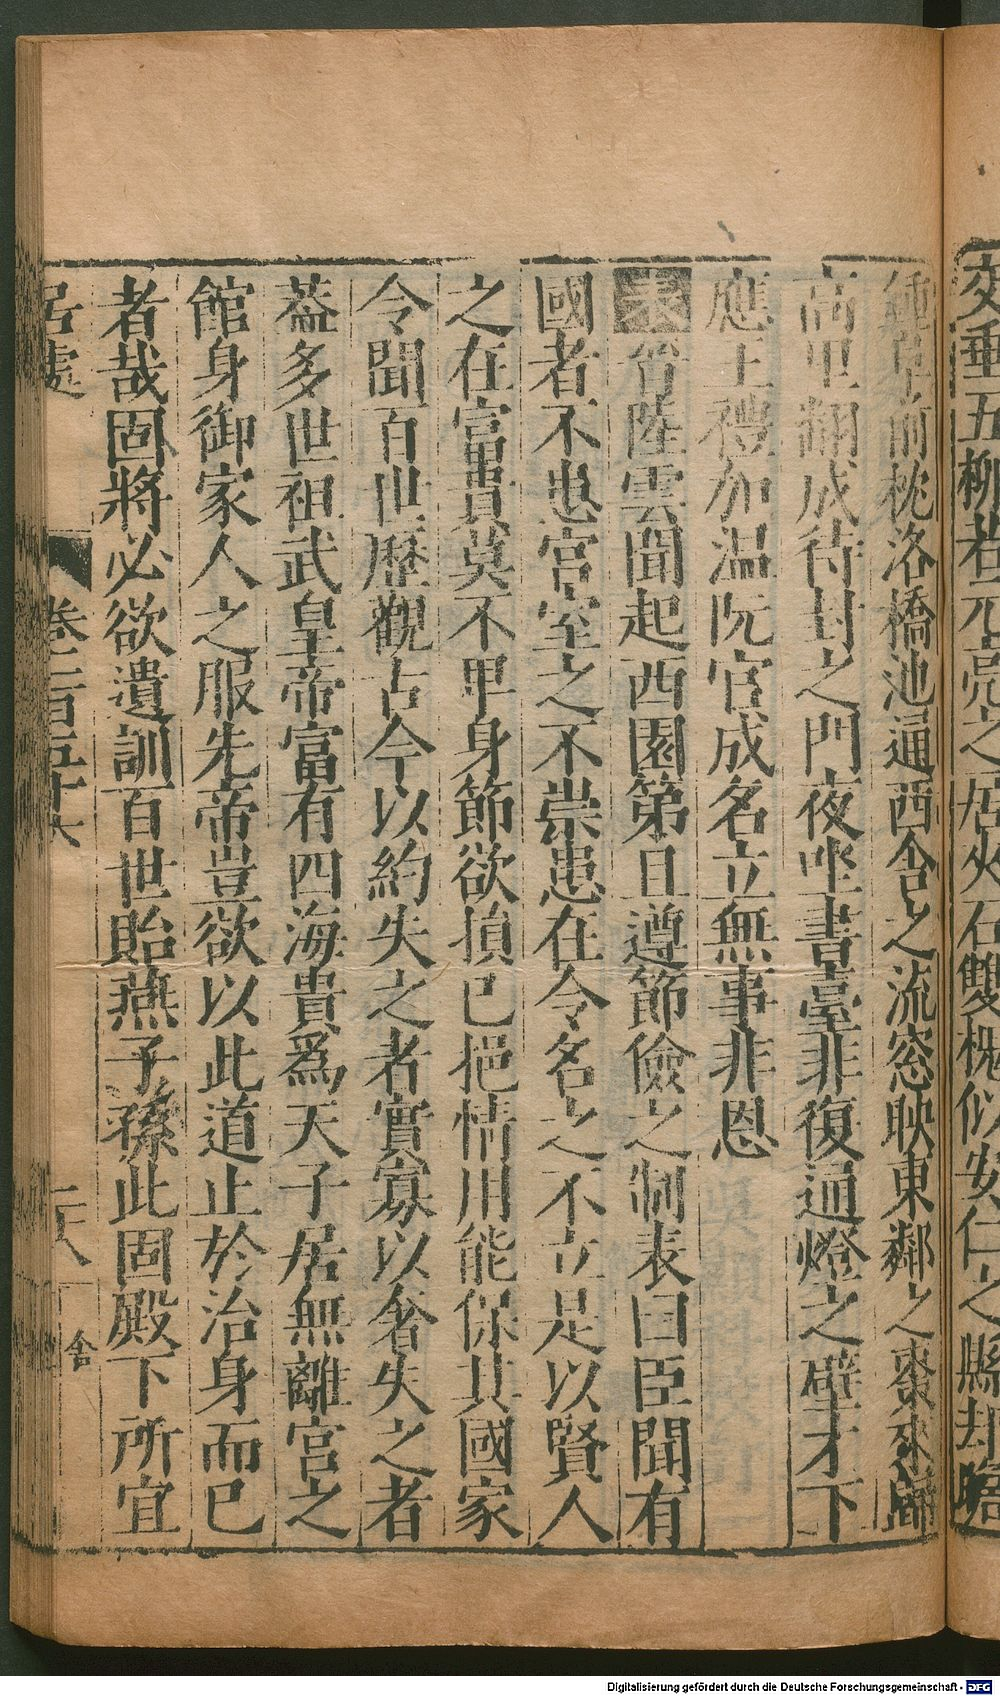 交垂五柳若元亮之居夾石雙槐似安仁之縣却瞻
鍾阜前枕洛橋池通西舍之流窓映東鄰之棗來歸
高里翻成待封之門夜坐書臺非復通燈之壁才下
應王禮加温阮官成名立無事非恩
表晉陸雲聞起西園第且遵節儉之制表曰臣聞有
國者不患宫室之不崇患在令名之不立是以賢人
之在富貴莫不卑身節欲損己挹情用能保其國家
令聞百世歷觀古今以約失之者實寡以奢失之者
葢多世祖武皇帝富有四海貴爲天子居無離宫之
館身御家人之服先帝豈欲以此道止於治身而已
者哉固將必欲遺訓百世貽燕子孫此固殿下所宜
居處 卷三百五十六 二八 舍
Digitalisierung gefördert durch die Deutsche Forschungsgemeinschaft - DFG